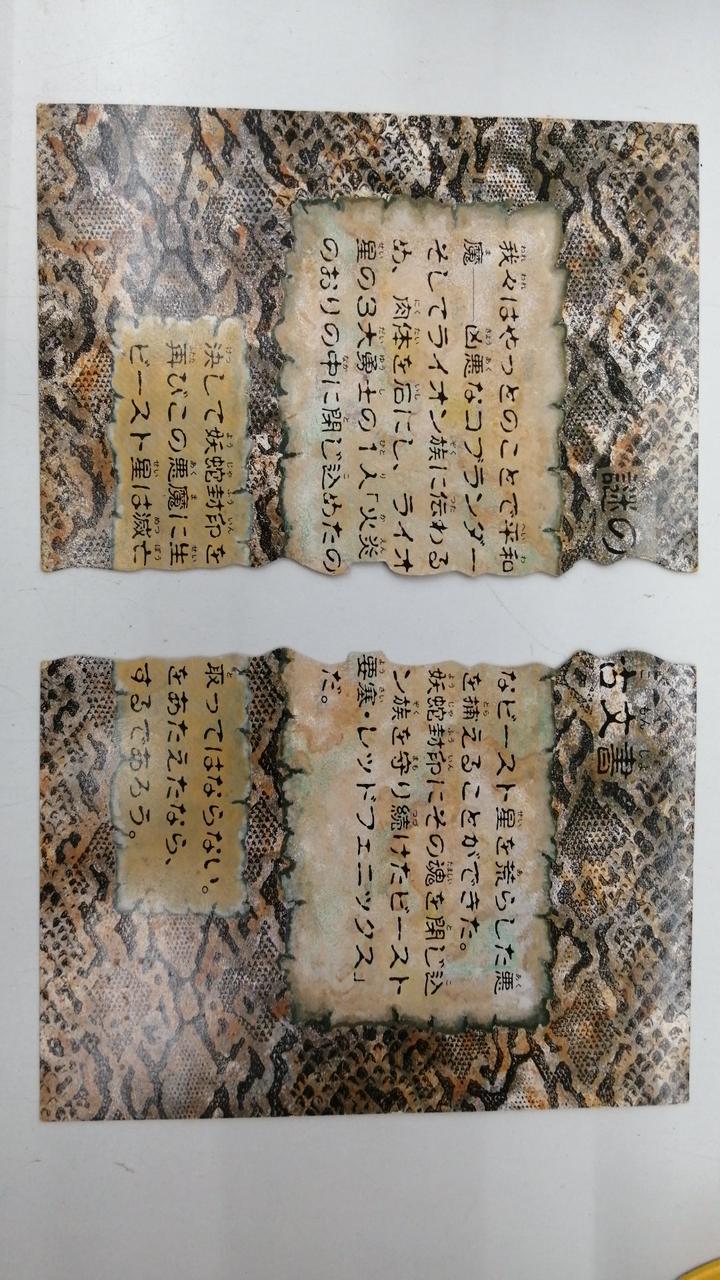 謎の古文書
我々はやっとのことで平和なビースト星を荒らした悪
魔――凶悪なコブランダーを捕えることができた。
そしてライオン族に伝わる妖蛇封印にその魂を閉じ込
め、肉体を石にし、ライオン族を守り続けたビースト
星の3大勇士の1人「火炎要塞・レッドフェニックス」
のおりの中に閉じ込めたのだ。
決して妖蛇封印を取ってはならない。
再びこの悪魔に生をあたえたなら、
ビースト星は滅亡するであろう。